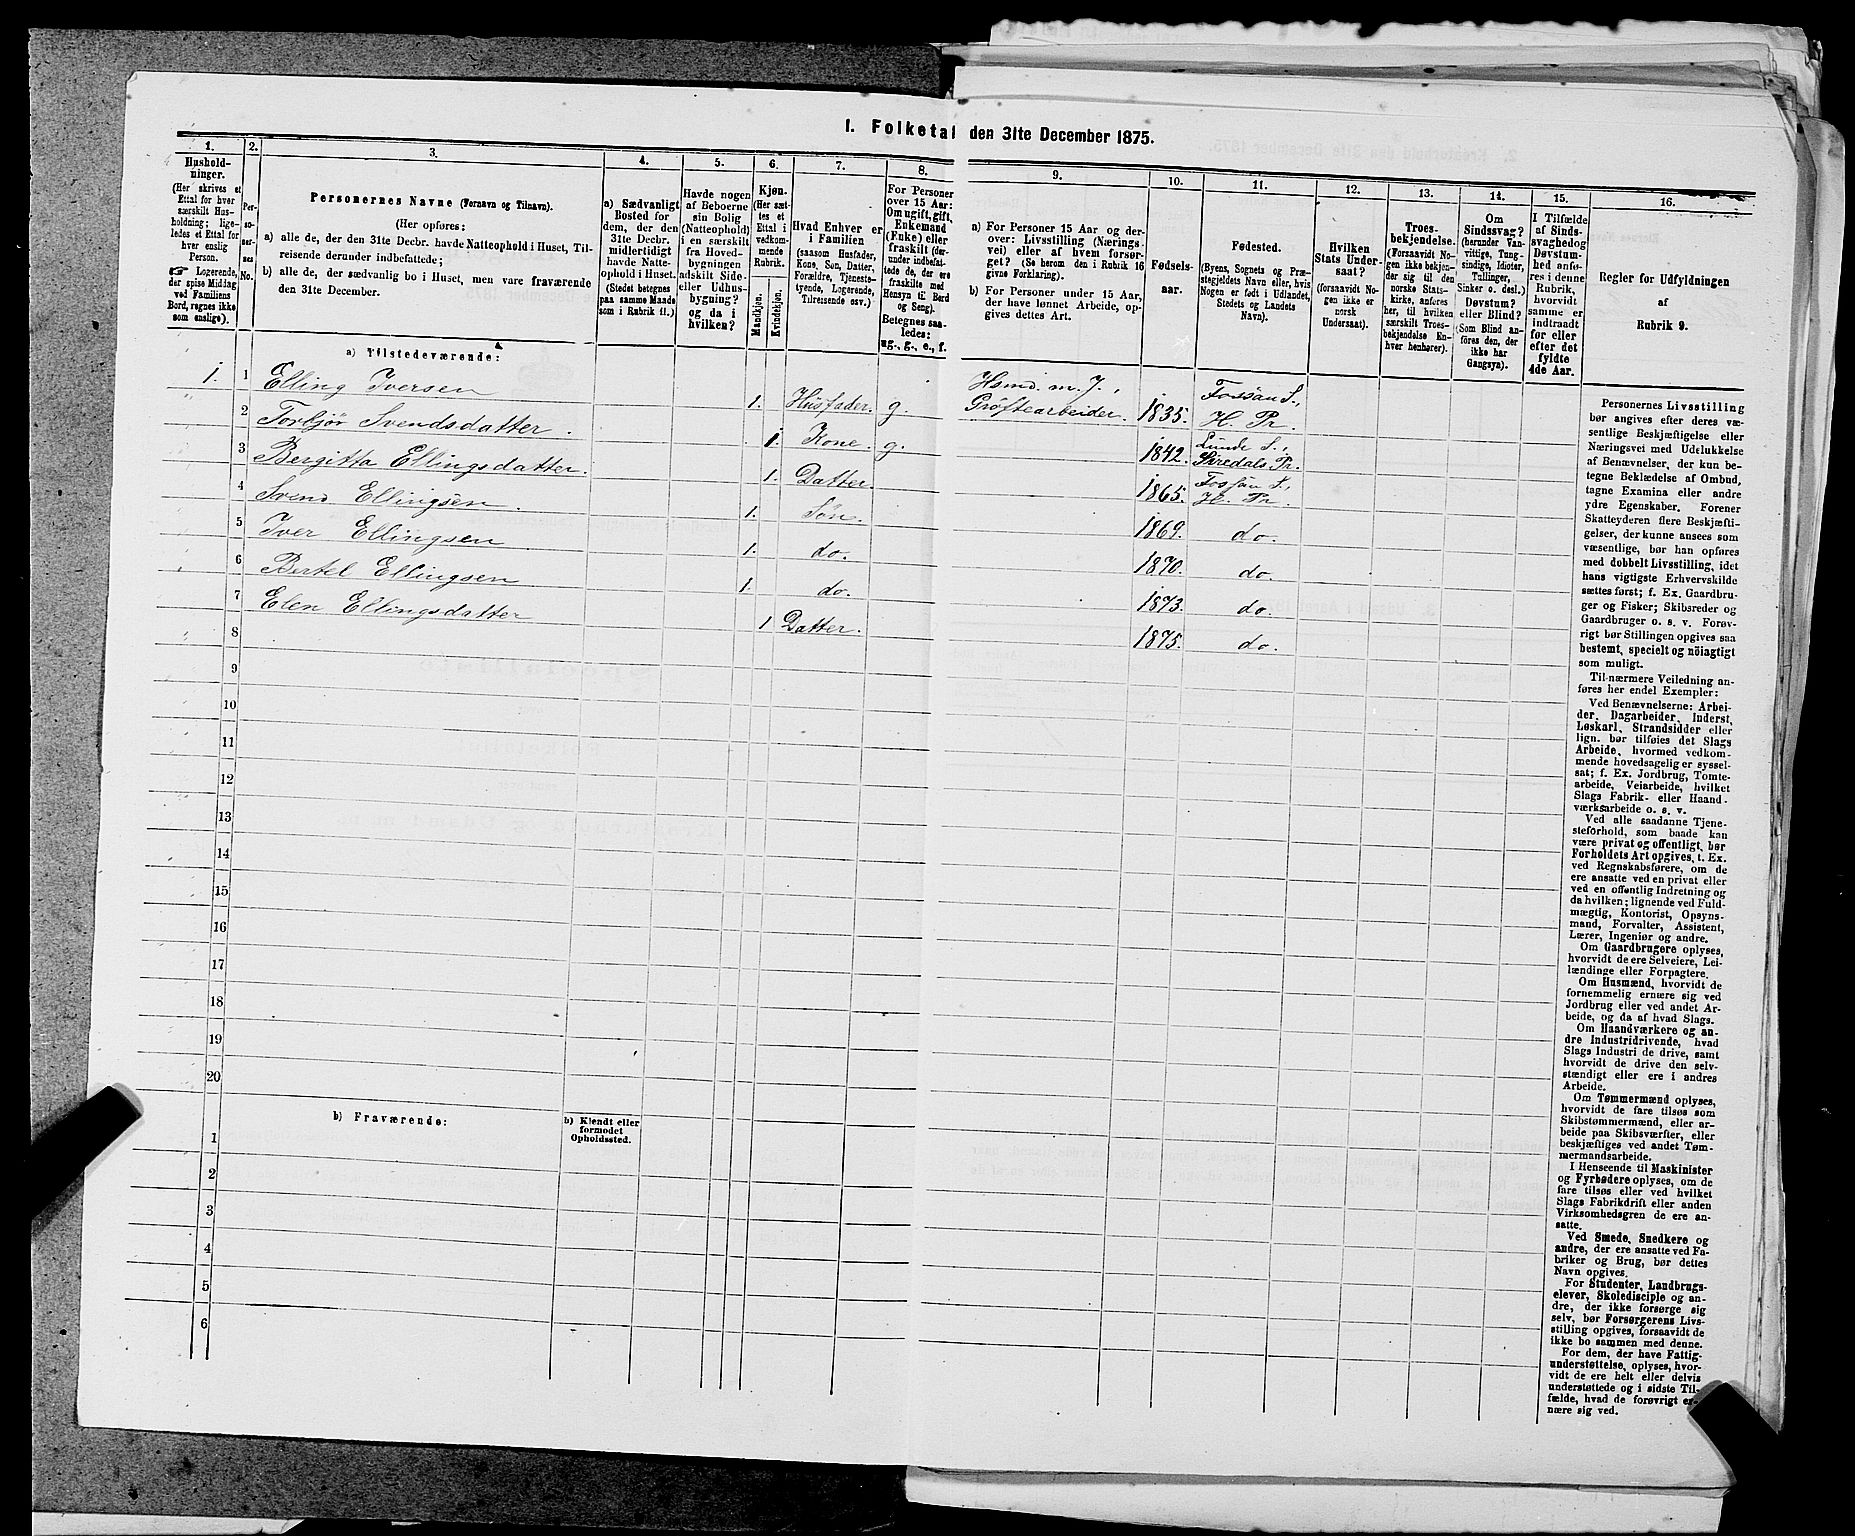 1. Folketal den 31te December 1875.
1.
Hushold-
ninger.
(Her skrives et
Ettal for hver
særskilt Hus-
holdning; lige-
ledes et Ettal for
hver enslig
Person.
Logerende,
der spise Middag
ved Familiens
Bord, regnes ikke
som enslige).
2.
Per-
so-
ner-
nes
No.
3.
Personernes Navne (Fornavn og Tilnavn).
(Her opføres:
a) alle de, der den 31te Decbr. havde Natteophold i Huset, Til-
reisende derunder indbefattede;
b) alle de, der sædvanlig bo i Huset, men vare fraværende
den 31te December.
4.
a) Sædvanligt
Bosted for
dem, der den
31te Decbr.
midlertidigt
havde Natte-
ophold i Huset.
(Stedet betegnes
paa samme Maade
som i Rubrik 11.)
5.
Havde nogen
af Beboerne
sin Bolig
(Natteophold)
i en særskilt
fra Hoved-
bygningen
adskilt Side-
eller Udhus-
bygning?
og da i
hvilken?
6.
Kjøn.
(Her sæt-
tes et
Ettal i
vedkom-
mende
Rubrik.
Mandkjøn.
Kvindekjøn.
7.
Hvad Enhver er
i Familien
(saasom Husfader,
Kone, Søn, Datter,
Forældre, Tjeneste-
tyende, Logerende,
Tilreisende osv.)
8.
For Personer
over 15 Aar:
Om ugift, gift,
Enkemand
(Enke) eller
fraskilt (der-
under indbefat-
tede de, der ere
fraskilte med
Hensyn til Bord
og Seng).
Betegnes saa-
ledes:
ug., g., e., f.
9.
a) For Personer 15 Aar og der-
over: Livsstilling (Nærings-
vei) eller af hvem forsør-
get? (Se herom den i Rubrik 16
givne Forklaring).
b) For Personer under 15 Aar,
der have lønnet Arbeide, op-
gives dettes Art.
10.
Fødsels-
aar.
11.
Fødested.
(Byens, Sognets og Præ-
stegjeldets Navn eller, hvis
Nogen er født i Udlandet,
Stedets og Landets
Navn).
12.
Hvilken
Stats Under-
saat?
(forsaavidt No-
gen ikke er
norsk
Undersaat).
13.
Troes-
bekjendelse.
(Forsaavidt No-
gen ikke bekjen-
der sig til den
norske Stats-
kirke, anføres
her, til hvilken
særskilt Troes-
bekjendelse En-
hver henhører).
14.
Om
Sindssvag?
(herunder Van-
vittige, Tung-
sindige, Idioter,
Tullinger,
Sinker o. desl.)
Døvstum?
eller Blind?
(Som Blind an-
føres den, der
ikke har
Gangsyn).
15.
I Tilfælde
af Sinds-
svaghed og
Døvstum-
hed anfø-
res i denne
Rubrik,
hvorvidt
samme er
indtraadt
før eller
efter det
fyldte
4de Aar.
16.
Regler for Udfyldningen
af
Rubrik 9.
a) Tilstedeværende:
1. 1 Elling Iversen 1. Husfader. g. Hsmd. m. J., Grøftearbeider. 1835. Fossan S., H. Pr.
2 Torbjør Svendsdatter. 1. Kone. g. 1842. Lunde S., Siredals Pr.
3 Bergitta Ellingsdatter. 1. Datter. 1865. Fossan S., H. Pr.
4 Svend Ellingsen. 1. Søn. 1869. do.
5 Iver Ellingsen 1. do. 1870. do.
6 Bertel Ellingsen 1. do. 1873. do.
7 Elen Ellingsdatter 1 Datter. 1875. do.
8
9
10
11
12
13
14
15
16
17
18
19
20
b) Fraværende:
b) Kjendt eller
formodet
Opholdssted.
1
2
3
4
5
6
Personernes Livsstilling
bør angives efter deres væ-
sentlige Beskjæftigelse eller
Næringsvei med Udelukkelse
af Benævnelser, der kun be-
tegne Beklædelse af Ombud,
tagne Examina eller andre
ydre Egenskaber. Forener
Skatteyderen flere Beskjæfti-
gelser, der kunne ansees som
væsentlige, bør han opføres
med dobbelt Livsstilling, idet
hans vigtigste Erhvervskilde
sættes først; f. Ex. Gaardbru-
ger og Fisker; Skibsreder og
Gaardbruger o. s. v. Forøv-
rigt bør Stillingen opgives saa
bestemt, specielt og nøiagtigt
som muligt.
Til nærmere Veiledning an-
føres her endel Exempler:
Ved Benævnelserne: Arbei-
der, Dagarbeider, Inderst,
Løskarl, Strandsidder eller
lign. bør tilføies det Slags
Arbeide, hvormed vedkom-
mende hovedsagelig er syssel-
sat; f. Ex. Jordbrug, Tomte-
arbeide, Veiarbeide, hvilket
Slags Fabrik- eller Haand-
værksarbeide o. s. v.
Ved alle saadanne Tjene-
steforhold, som baade kan
være privat og offentligt, bør
Forholdets Art opgives, t. Ex.
ved Regnskabsførere, om de
ere ansatte ved en privat eller
ved en offentlig Indretning og
da hvilken; lignende ved Fuld-
mægtig, Kontorist, Opsyns-
mand, Forvalter, Assistent,
Lærer, Ingeniør og andre.
Om Gaardbrugere oplyses,
hvorvidt de ere Selveiere, Lei-
lændinge eller Forpagtere.
Om Husmænd, hvorvidt de
fornemmelig ernære sig ved
Jordbrug eller ved andet Ar-
beide, og da af hvad Slags.
Om Haandværkere og an-
dre Industridrivende, hvad
Slags Industri de drive, samt
hvorvidt de drive den selv-
stændigt eller ere i andres
Arbeide.
Om Tømmermænd oplyses,
hvorvidt de fare tilsøs som
Skibstømmermænd, eller ar-
beide paa Skibsværfter, eller
beskjæftiges ved andet Tøm-
mermandsarbeide.
I Henseende til Maskinister
og Fyrbødere oplyses, om de
fare tilsøs eller ved hvilket
Slags Fabrikdrift eller anden
Virksomhedsgren de ere an-
satte.
Ved Smede, Snedkere og
andre, der ere ansatte ved Fa-
briker og Brug, bør dettes
Navn opgives.
For Studenter, Landbrugs-
elever, Skoledisciple og an-
dre, der ikke forsørge sig
selv, bør Forsørgerens Livs-
stilling opgives, forsaavidt de
ikke bo sammen med denne.
For dem, der have Fattig-
understøttelse, oplyses, hvor-
vidt de ere helt eller delvis
understøttede og i sidste Til-
fælde, hvad de forøvrigt er-
nære sig ved.